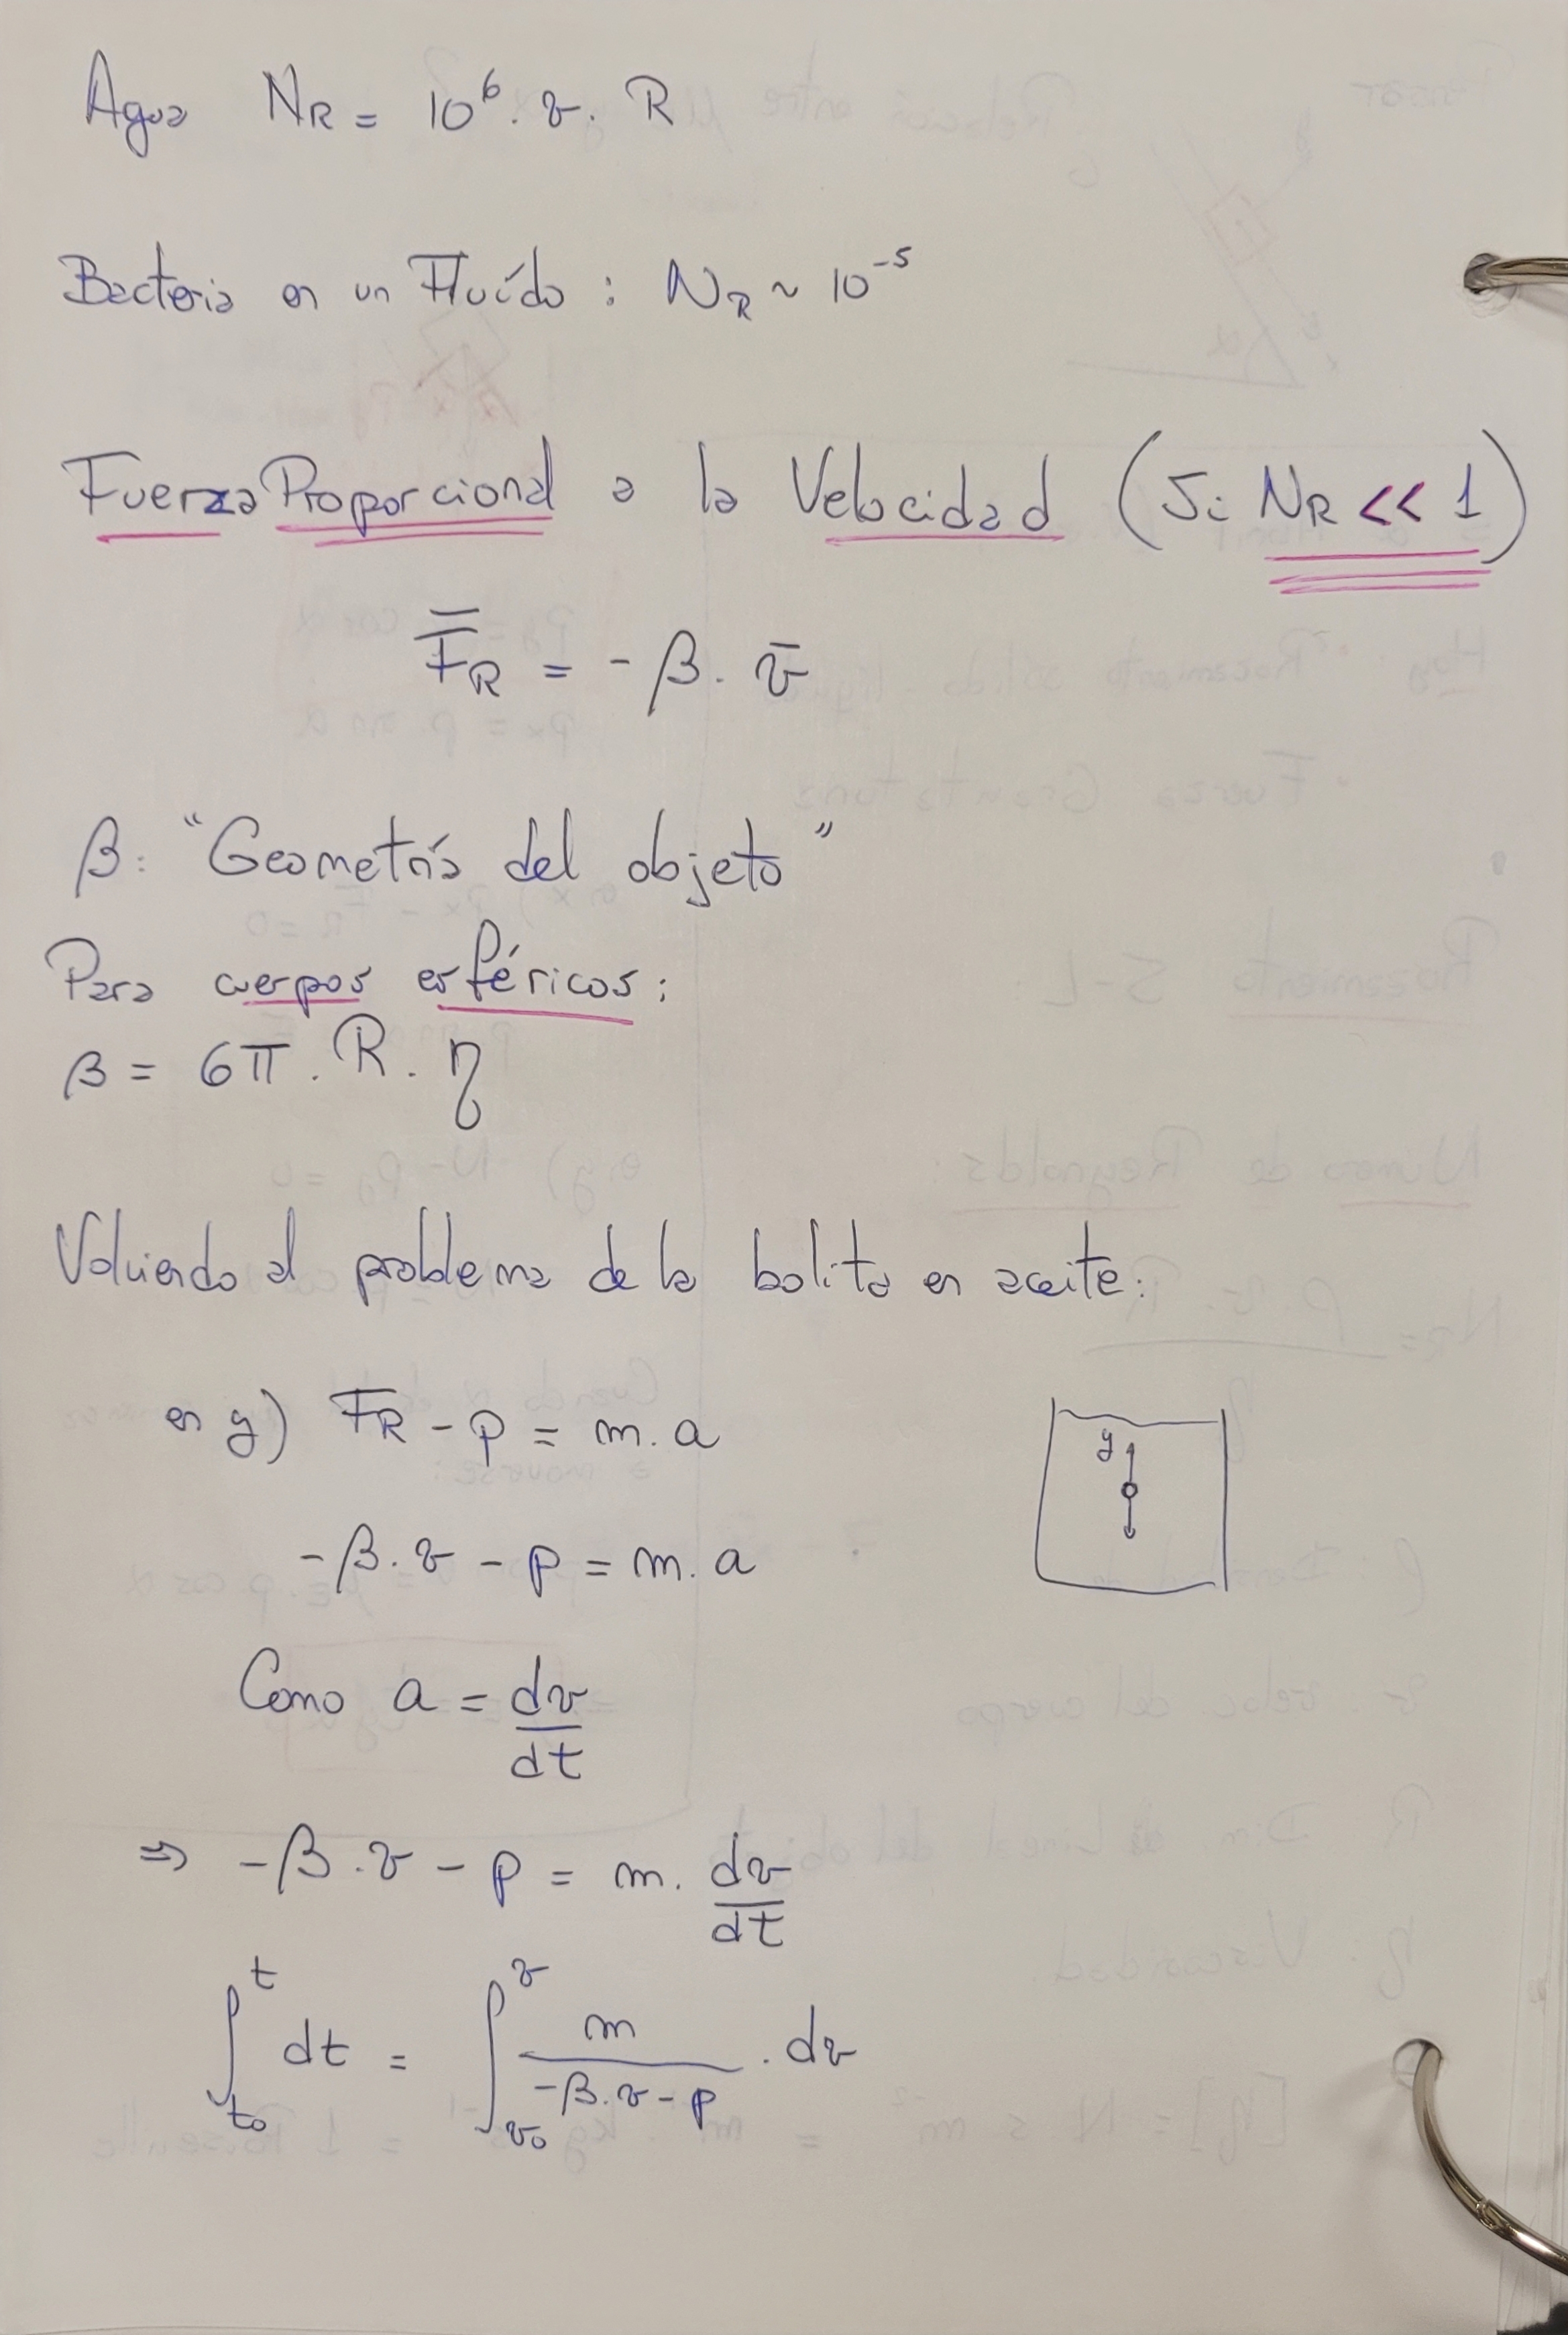 Agua N_R = 10^6 . v . R
Bacteria en un Fluído : N_R ~ 10^-5
Fuerza Proporcional a la Velocidad (Si N_R << 1)
F_R = - β . v̄
β: "Geometría del objeto"
Para cuerpos esféricos:
β = 6π . R . η
Volviendo al problema de la bolita en aceite:
en y) F_R - p = m . a
y
-β . v - p = m . a
Como a = dv/dt
⇒ -β . v - p = m . dv/dt
∫_{t₀}^{t} dt = ∫_{v₀}^{v} m/(-β . v - p) . dv